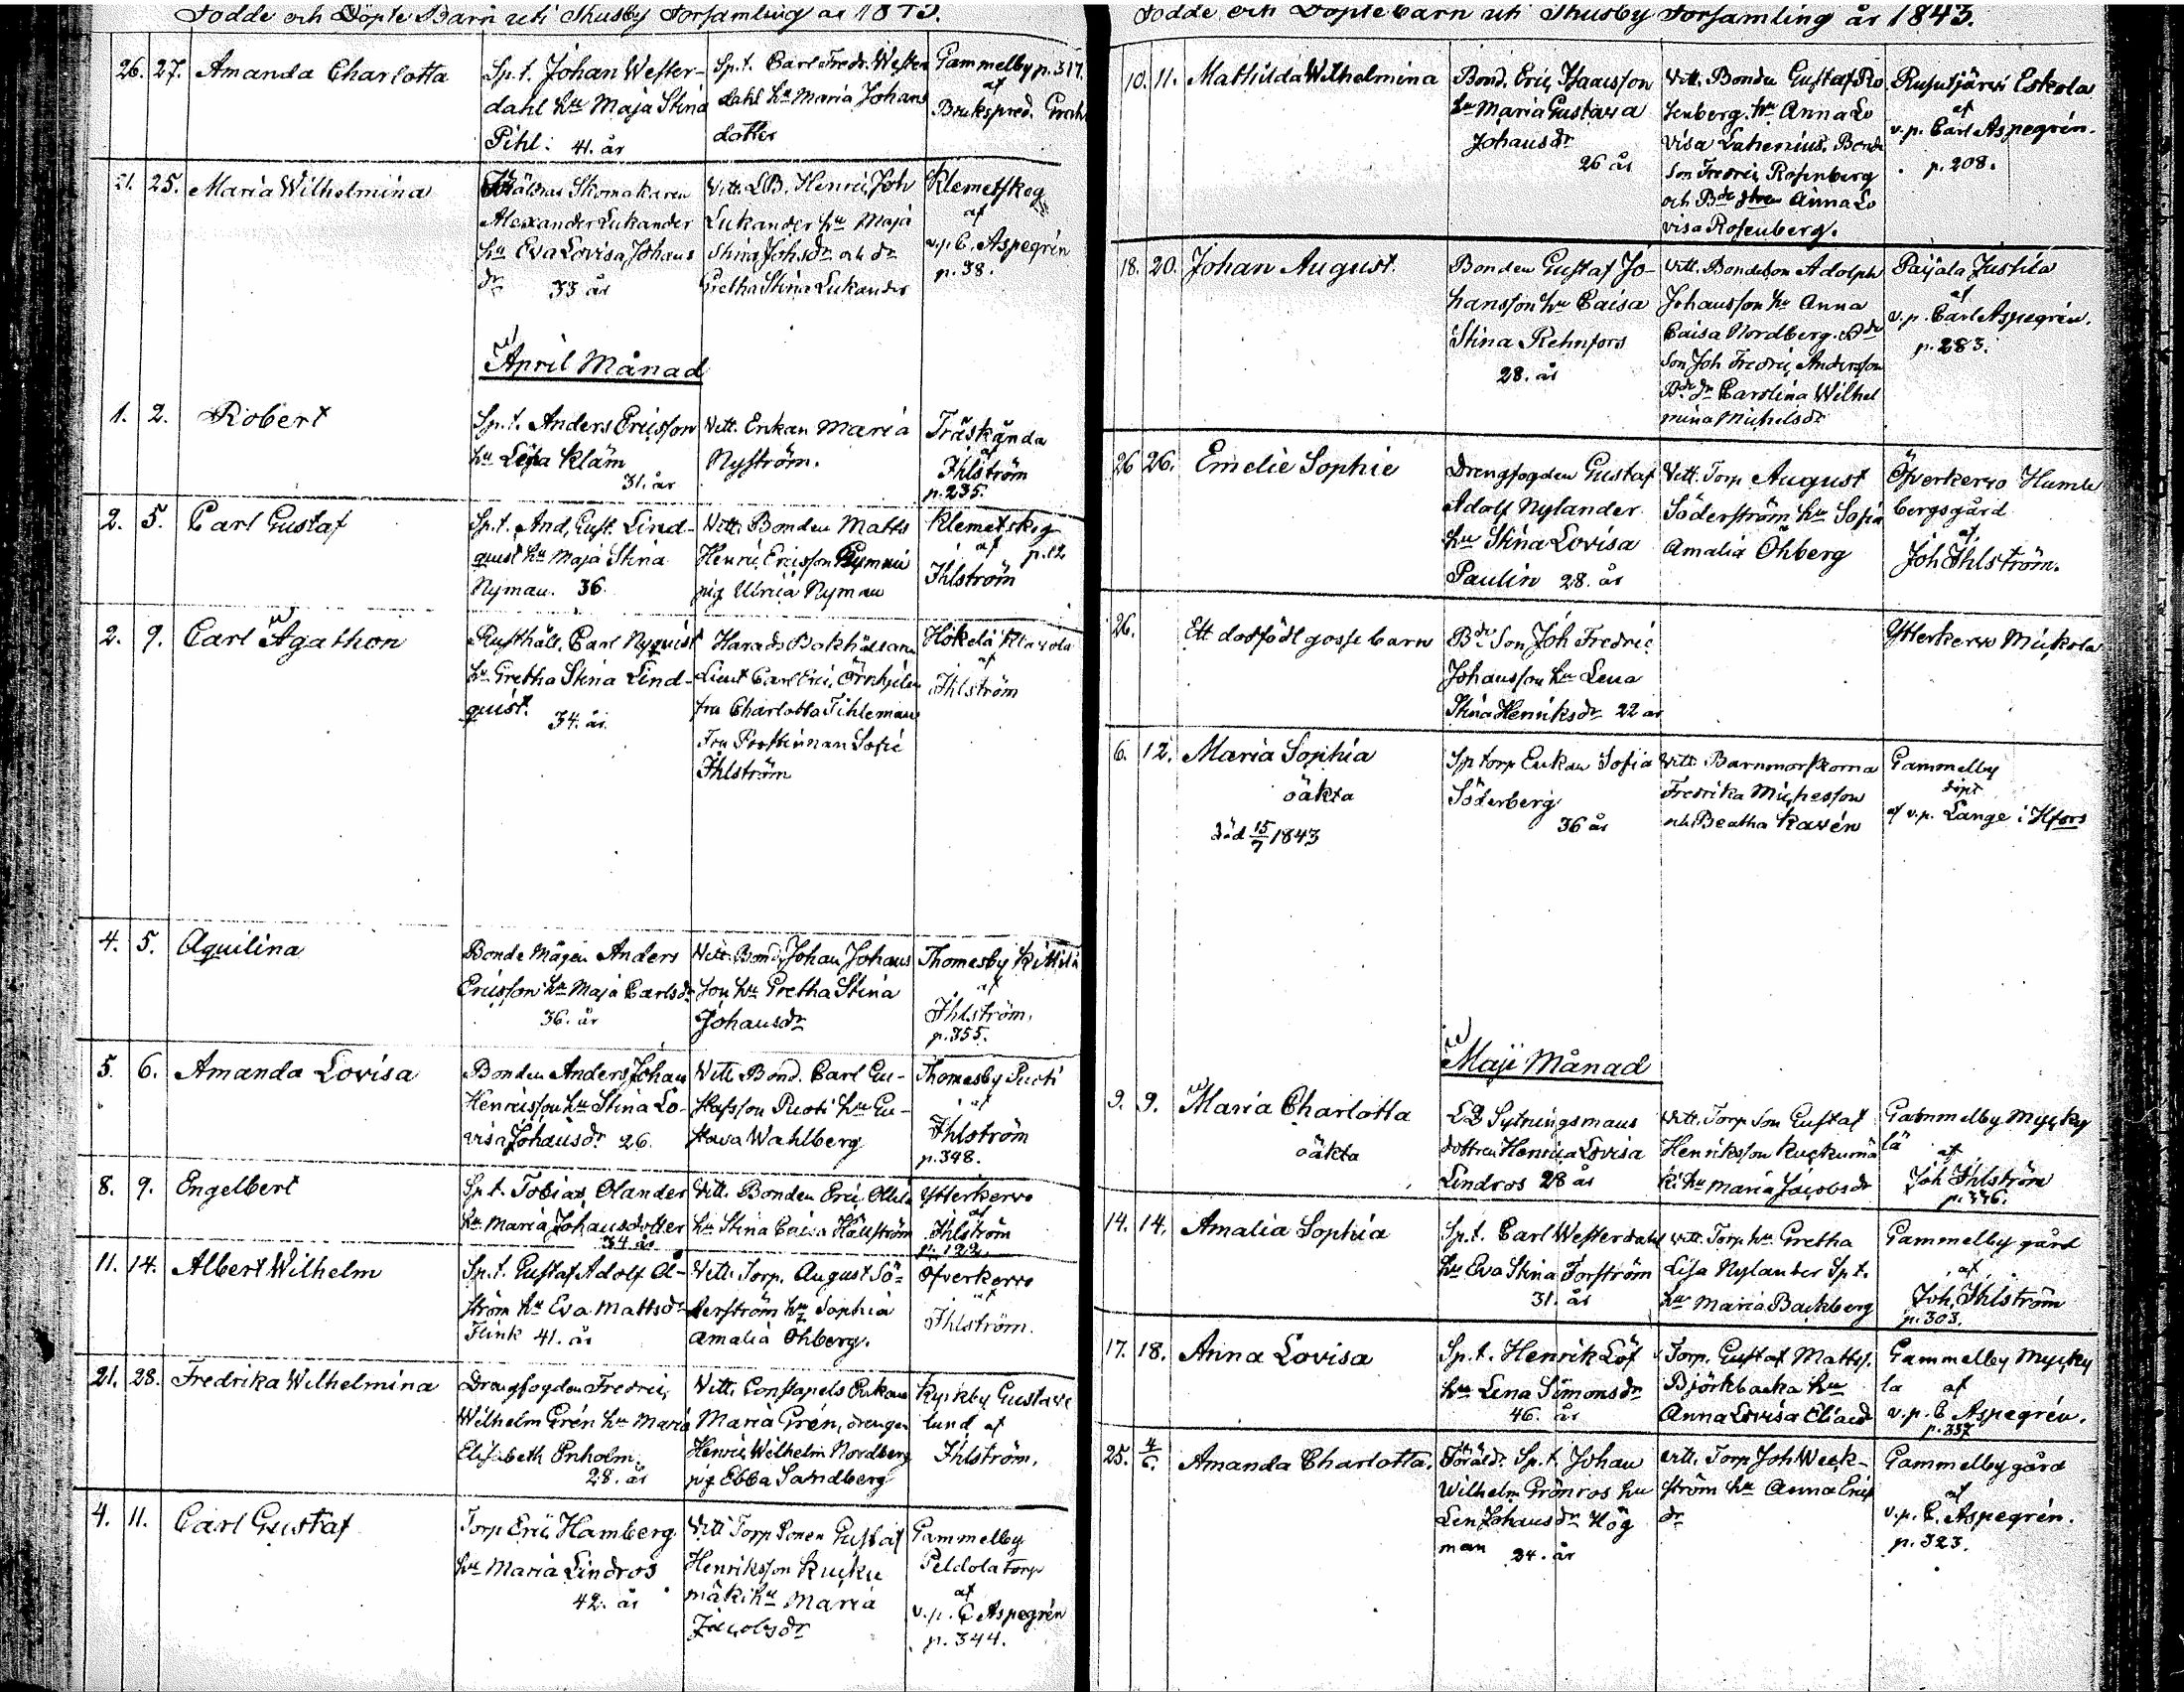 Födde och Döpte Barn uti Thusby Församling år 1843.
26. 27. Amanda Charlotta
Sp.t. Johan Wester-
dahl hu Maja Stina
Pihl. 41. år
Sp.t. Carl Fredr. Wester
dahl hu Maria Johans
dotter
Gammelby p. 317.
af
Brukspred.
21. 25. Maria Wilhelmina
Skomakaren
Alexander Lukander
hu Eva Lovisa Johans
dr 33 år
Vitt. LB. Henric Joh
Lukander hu Maja
Stina Johsdr och dr
Gretha Stina Lukander
Klemetskog
af
v.p. C. Aspegrén
p. 38.
April Månad
1. 2. Robert
Sp.t. Anders Ericsson
hu Lisa Kläm
31. år
Vitt. Enkan Maria
Nyström.
Träskända
af
Ihlström
p. 235.
2. 5. Carl Gustaf
Sp.t. And. Gust. Lind-
quist hu Maja Stina
Nyman. 36.
Vitt. Bonden Matts
Henric Ericsson
pig Ulrica Nyman
Klemetskog
af p. 12
Ihlström
2. 9. Carl Agathon
Rusthåll. Carl Nyquist
hu Gretha Stina Lind-
quist. 34. år
Harads Bokhållaren
Lieut Carl Eric Örnhjelm
fru Charlotta Tihleman
Fru Prostinnan Sofie
Ihlström
Hökelä Klavola
af
Ihlström
4. 5. Aquilina
Bonde Mågen Anders
Ericsson hu Maja Carlsdr
36. år
Vitt. Bond. Johan Johans
son hu Gretha Stina
Johansdr
Thomesby Kittilä
af
Ihlström.
p. 355.
5. 6. Amanda Lovisa
Bonden Anders Johan
Henricsson hu Stina Lo-
visa Johansdr 26.
Vitt. Bond. Carl Gu-
stafsson Puoti hu Gu-
stava Wahlberg
Thomesby Puoti
af
Ihlström
p. 348.
8. 9. Engelbert
Sp.t. Tobias Olander
hu Maria Johansdotter
34 år
Vitt. Bonden Eric Ollila
hu Stina Caisa Hällström
Ytterkervo
af
Ihlström
p. 122.
11. 14. Albert Wilhelm
Sp.t. Gustaf Adolf Ol-
ström hu Eva Mattsdr
Flink 41. år
Vitt. Torp. August Sö-
derström hu Sophia
Amalia Öhberg.
Öfverkervo
af
Ihlström.
21. 28. Fredrika Wilhelmina
Drengfogden Fredric
Wilhelm Grén hu Maria
Elisabeth Enholm.
28. år
Vitt. Constapels Enkan
Maria Grén, drengen
Henric Wilhelm Nordberg
pig Ebba Sandberg
Kyrkby Gustave
lund af
Ihlström.
4. 11. Carl Gustaf
Torp Eric Hamberg
hu Maria Lindros
42. år
Vitt Torp Sonen Gustaf
Henriksson Kucku
mäki hu Maria
Jacobsdr
Gammelby
Peldola torp
af
v.p. C Aspegrén
p. 344.
Födde och Döpte barn uti Thusby Församling år 1843.
10. 11. Mathilda Wilhelmina
Bond. Eric Isaacsson
hu Maria Gustava
Johansdr
26 år
Vitt. Bonden Gustaf Ro
senberg. hu Anna Lo
visa Bonde
Son Fredric Rosenberg
och Bde Anna Lo
visa Rosenberg.
Rusutjärvi Eskola
af
v.p. Carl Aspegrén.
p. 208.
18. 20. Johan August.
Bonden Gustaf Jo-
hansson hu Caisa
Stina Rehnfors
28. år
Vitt. Bondeson Adolph
Johansson hu Anna
Caisa Nordberg. Bde
Son Joh Fredric Andersson
Bde dr Carolina Wilhel
mina Michelsdr
Paijala Justila
af
v.p. Carl Aspegrén.
p. 283.
26 26. Emelie Sophie
Drengfogden Gustaf
Adolf Nylander
hu Stina Lovisa
Paulin 28. år
Vitt. Torp August
Söderström hu Sofia
Amalia Öhberg
Öfverkervo Humle
bergsgård
af
Joh Ihlström.
26. Ett dödfödt gosse barn
Bde Son Joh Fredric
Johansson hu Lena
Stina Henriksdr 22 år
Ytterkervo Mickola
6. 12. Maria Sophia
oäkta
död 15/7 1843
Sp torp Enkan Sofia
Söderberg
36 år
Vitt. Barnmorskorna
Fredrika Michesson
och Beatha Kavén
Gammelby
döpt
af v.p. Lange i Hfors
Maji Månad
9. 9. Maria Charlotta
oäkta
LB Sytningsmans
dottren Henrica Lovisa
Lindros 28 år
Vitt. Torp Son Gustaf
Henriksson Kuckumä
ki hu Maria Jacobsdr
Gammelby Mycky
lä af
Joh Ihlström
p. 336.
14. 14. Amalia Sophia
Sp.t. Carl Westerdahl
hu Eva Stina Forström
31. år
Vitt. Torp hu Gretha
Lisa Nylander Sp.t.
hu Maria Backberg
Gammelby gård
af
Joh. Ihlström
p. 303.
17. 18. Anna Lovisa
Sp.t. Henrik Löf
hu Lena Simonsdr
46. år
Torp. Gustaf Mattss.
Björkbacka hu
Anna Lovisa Eliaed
Gammelby Mycky
la af
v.p. C Aspegrén.
p. 337
25. 4/6. Amanda Charlotta.
Föräld. Sp.t. Johan
Wilhelm Grönros hu
Len Johansdr Hög
man 24. år
Vitt. Torp Joh Weck-
ström hu Anna Erics
dr
Gammelby gård
af
v.p. C. Aspegrén.
p. 323.